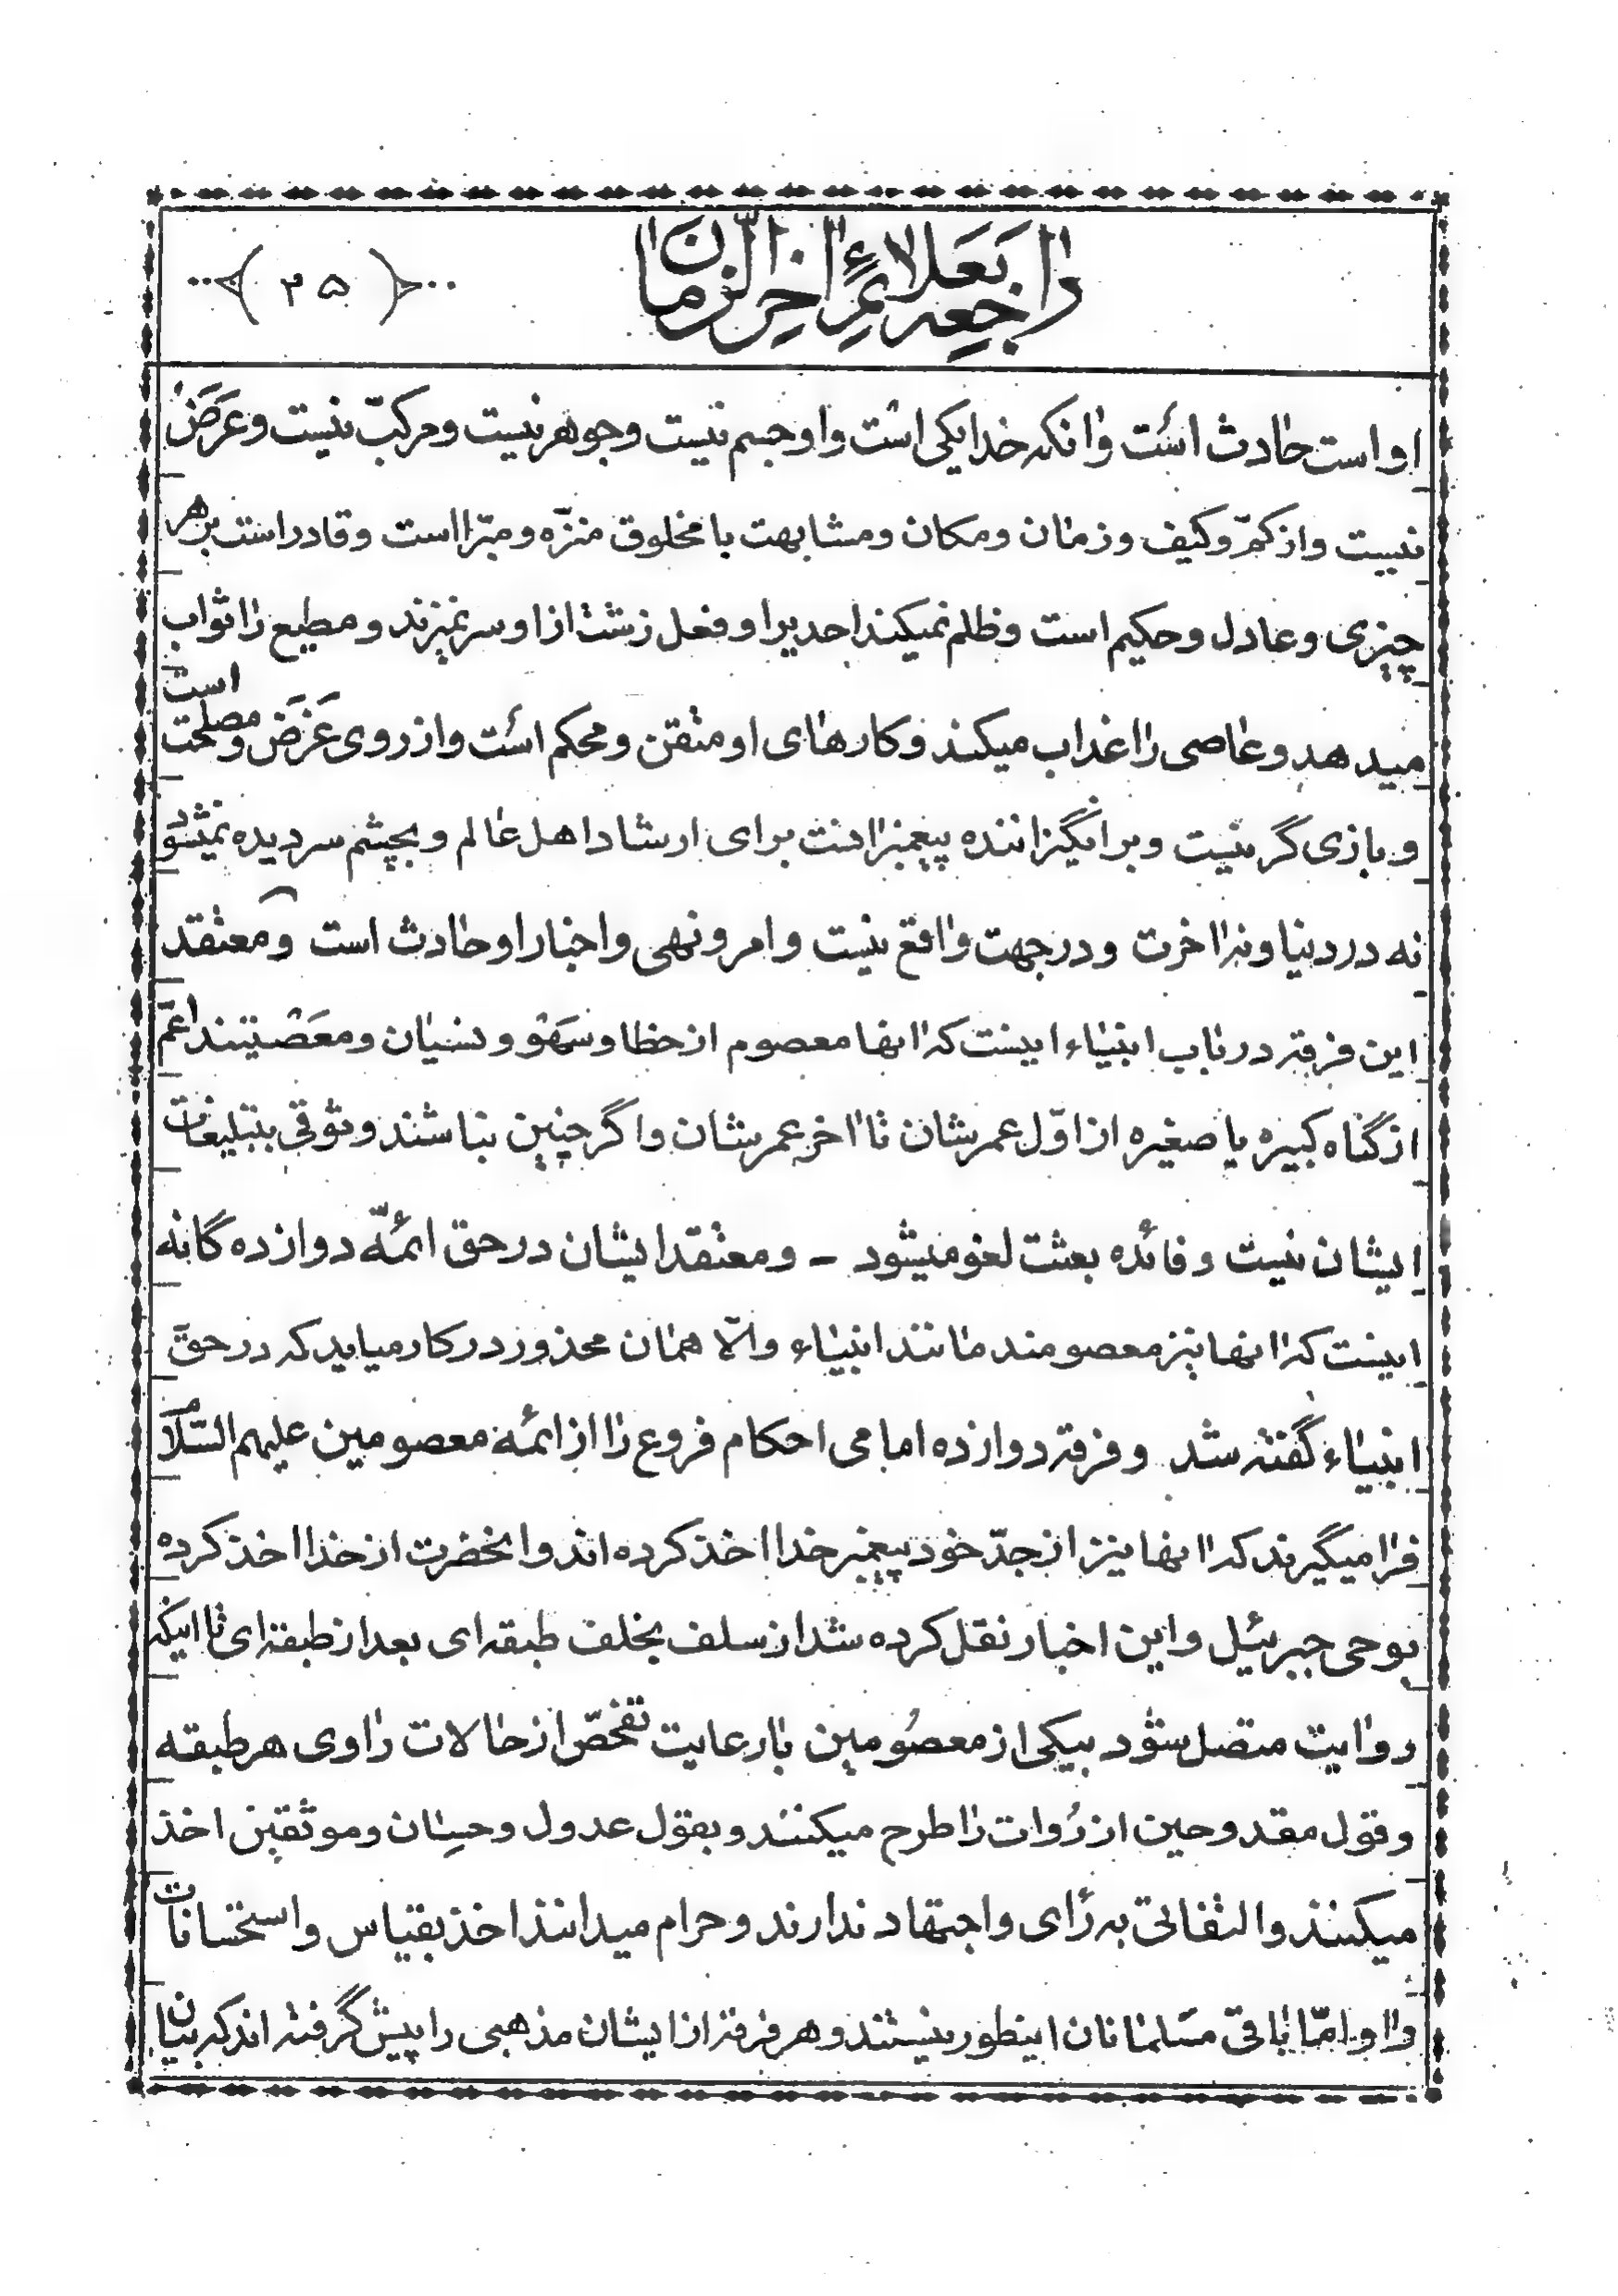 راجعه بعلائم اخر الزمان
﴿ ۳۵ ﴾
او است حادث است وانکه خدا یکی است واو جسم نیست وجوهر نیست ومرکبّ نیست وعَرَضْ
نیست واز کمّ وکیف وزمان ومکان ومشابهت با مخلوق منزّه ومبّرا است وقادر است بر هر
چیزی وعادل وحکیم است وظلم نمیکند احدیرا وفعل زشت از او سر نمیزند ومطیع را ثواب
میدهد وعاصی را عذاب میکند وکارهای او متقن ومحکم است واز روی غَرَض ومصلحت است
وبازی گر نیست وبرانگیزاننده پیغمبرانست برای ارشاد اهل عالم وبچشم سر دیده نمیشود
نه در دنیا ونه اخرت ودر جهت واقع نیست وامر ونهی واخبار او حادث است ومعتقد
این فرقه در باب انبیاء اینست که انها معصوم از خطا وسَهَو ونسیان ومعَصْیتند اعمّ
از گناه کبیره یا صغیره از اوّل عمرشان تا اخر عمرشان واگر چنین نباشند وثوقی بتبلیغات
ایشان نیست وفائده بعثت لغو میشود - ومعتقد ایشان در حق ائمّه دوازده گانه
اینست که انها نیز معصومند مانند انبیاء والّا همان محذور در کار میاید که در حقّ
انبیاء گفته شد وفرقه دوازده امامی احکام فروع را از ائمه معصومین علیهم السّلام
فرا میگیرند که انها نیز از جدّ خود پیغمبر خدا اخذ کرده اند وانحضرت از خدا اخذ کرده
بوحی جبرئیل واین اخبار نقل کرده شد از سلف بخلف طبقه ای بعد از طبقه ای تا اینکه
روایت متصل شود بیکی از معصُومین با رعایت تفحّص از حالات راوی هر طبقه
وقول مقدوحین از رُوات را طرح میکنند وبقول عدول وحِسان وموثقین اخذ
میکنند والتفاتی به رأی واجتهاد ندارند وحرام میدانند اخذ بقیاس واستحسانات
را وامّا باقی مسَلمانان اینطور نیستند وهر فرقه از ایشان مذهبی را پیش گرفته اند که بیان